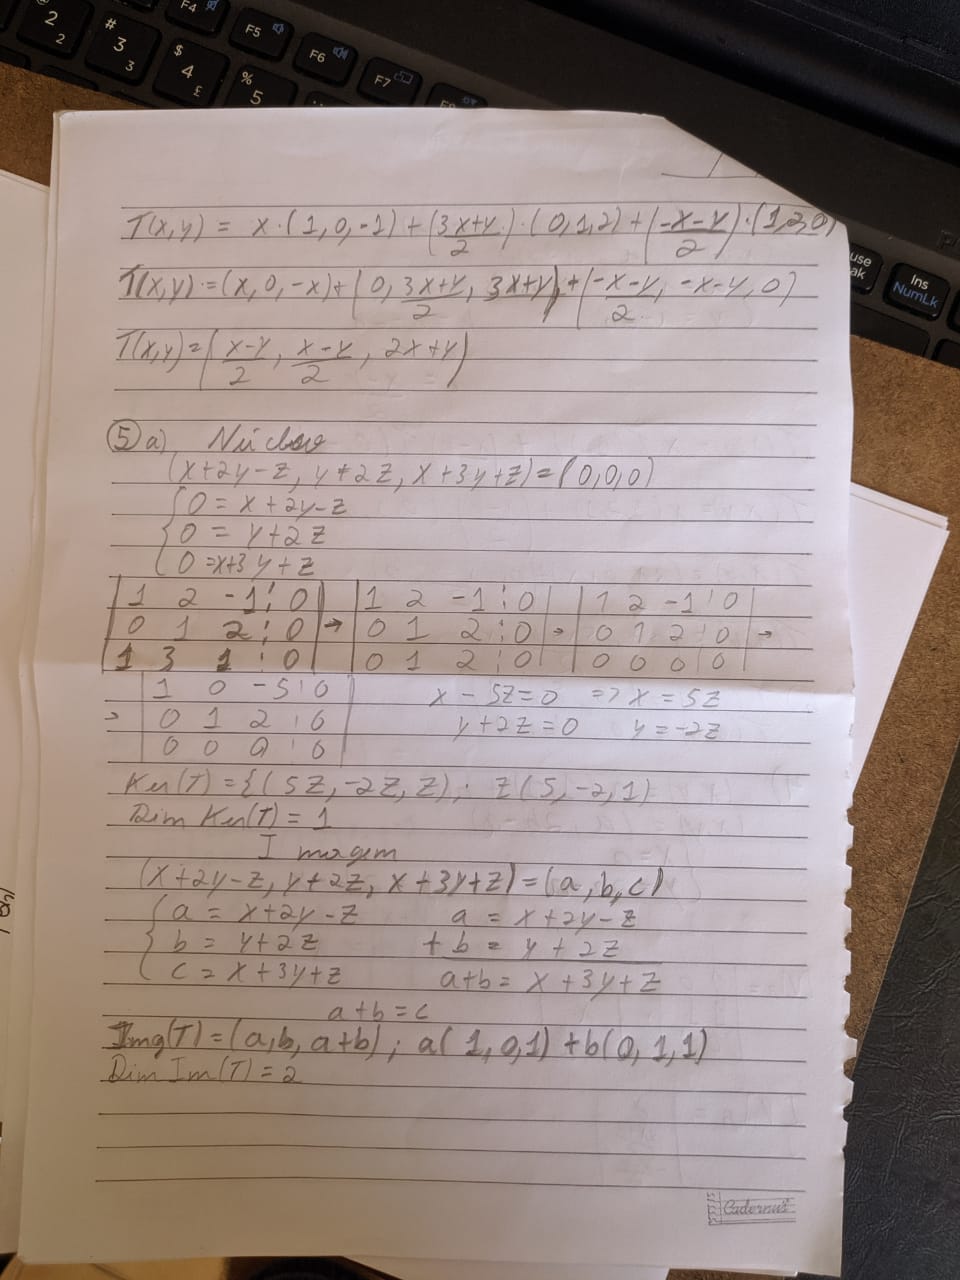 2 2 # 3 3 $ 4 £ % 5 F4 F5 F6 F7
Ins
NumLk
T(x,y) = x·(1,0,-1) + (3x+y/2)·(0,1,2) + (-x-y/2)·(1,2,0)
T(x,y) = (x,0,-x) + (0, 3x+y/2, 3x+y) + (-x-y/2, -x-y, 0)
T(x,y) = (x-y/2, x-y/2, 2x+y)
5 a) Núcleo
(x+2y-z, y+2z, x+3y+z) = (0,0,0)
{ 0 = x+2y-z
0 = y+2z
0 = x+3y+z
1 2 -1 | 0 1 2 -1 | 0 1 2 -1 | 0
0 1 2 | 0 → 0 1 2 | 0 → 0 1 2 | 0 →
1 3 1 | 0 0 1 2 | 0 0 0 0 | 0
1 0 -5 | 0 x - 5z = 0 => x = 5z
→ 0 1 2 | 0 y+2z = 0 y = -2z
0 0 0 | 0
Ker(T) = {(5z, -2z, z); z(5,-2,1)
Dim Ker(T) = 1
Imagem
(x+2y-z, y+2z, x+3y+z) = (a,b,c)
{ a = x+2y-z a = x+2y-z
b = y+2z + b = y+2z
c = x+3y+z a+b = x+3y+z
a+b = c
Img(T) = (a,b,a+b); a(1,0,1) + b(0,1,1)
Dim Im(T) = 2
Cadernus